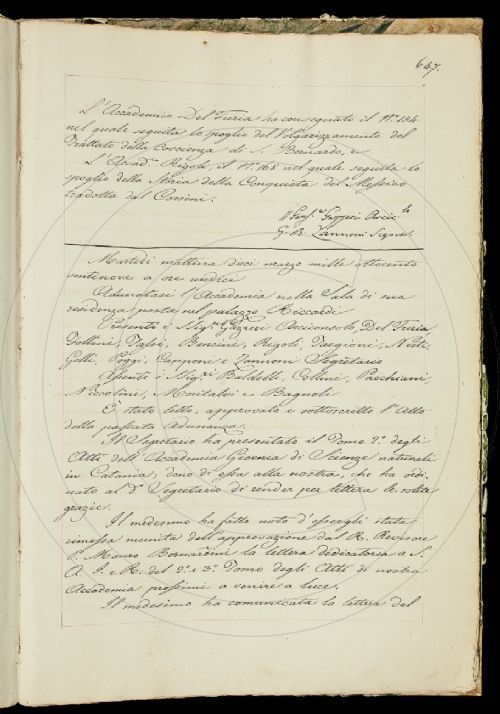 647.
L'Accademico Del Furia ha consegnato il N.° 184
nel quale seguita lo spoglio del Volgarizzamento del
Trattato della Coscienza di S. Bernardo, e
L'Accad.° Rigoli, il N.° 168 nel quale seguita lo
spoglio della Storia della Conquista del Messico
tradotta dal Corsini.
Gazzeri Arcic.
G. B. Zannoni Segret.
Martedì mattina dieci marzo mille ottocento
ventinove a ore undici
Adunatasi l'Accademia nella Sala di sua
residenza posta nel palazzo Riccardi
Presenti i Sig.ri Gazzeri Arciconsolo, Del Furia,
Follini, Tassi, Bencini, Rigoli, Targioni, Nesti,
Gelli, Poggi, Capponi e Zannoni Segretario
Assenti i Sig.ri Baldelli, Collini, Paschiani,
Niccolini, Montalvi e Bagnoli
È stato letto, approvato e sottoscritto l'Atto
della passata Adunanza.
Il Segretario ha presentato il Tomo 2.° degli
Atti dell'Accademia Gioenia di Scienze naturali
in Catania; dono di essa alla nostra, che ha ordi-
nato al d.° Segretario di render per lettera le solite
grazie.
Il medesimo ha fatto noto d'essergli stata
rimessa munita dell'approvazione dal R. Revisore
P. Mauro Bernardini la lettera dedicatoria a S.
A. I. e R. del 2.° e 3.° Tomo degli Atti di nostra
Accademia prossimi a venire a luce.
Il medesimo ha comunicata la lettera del